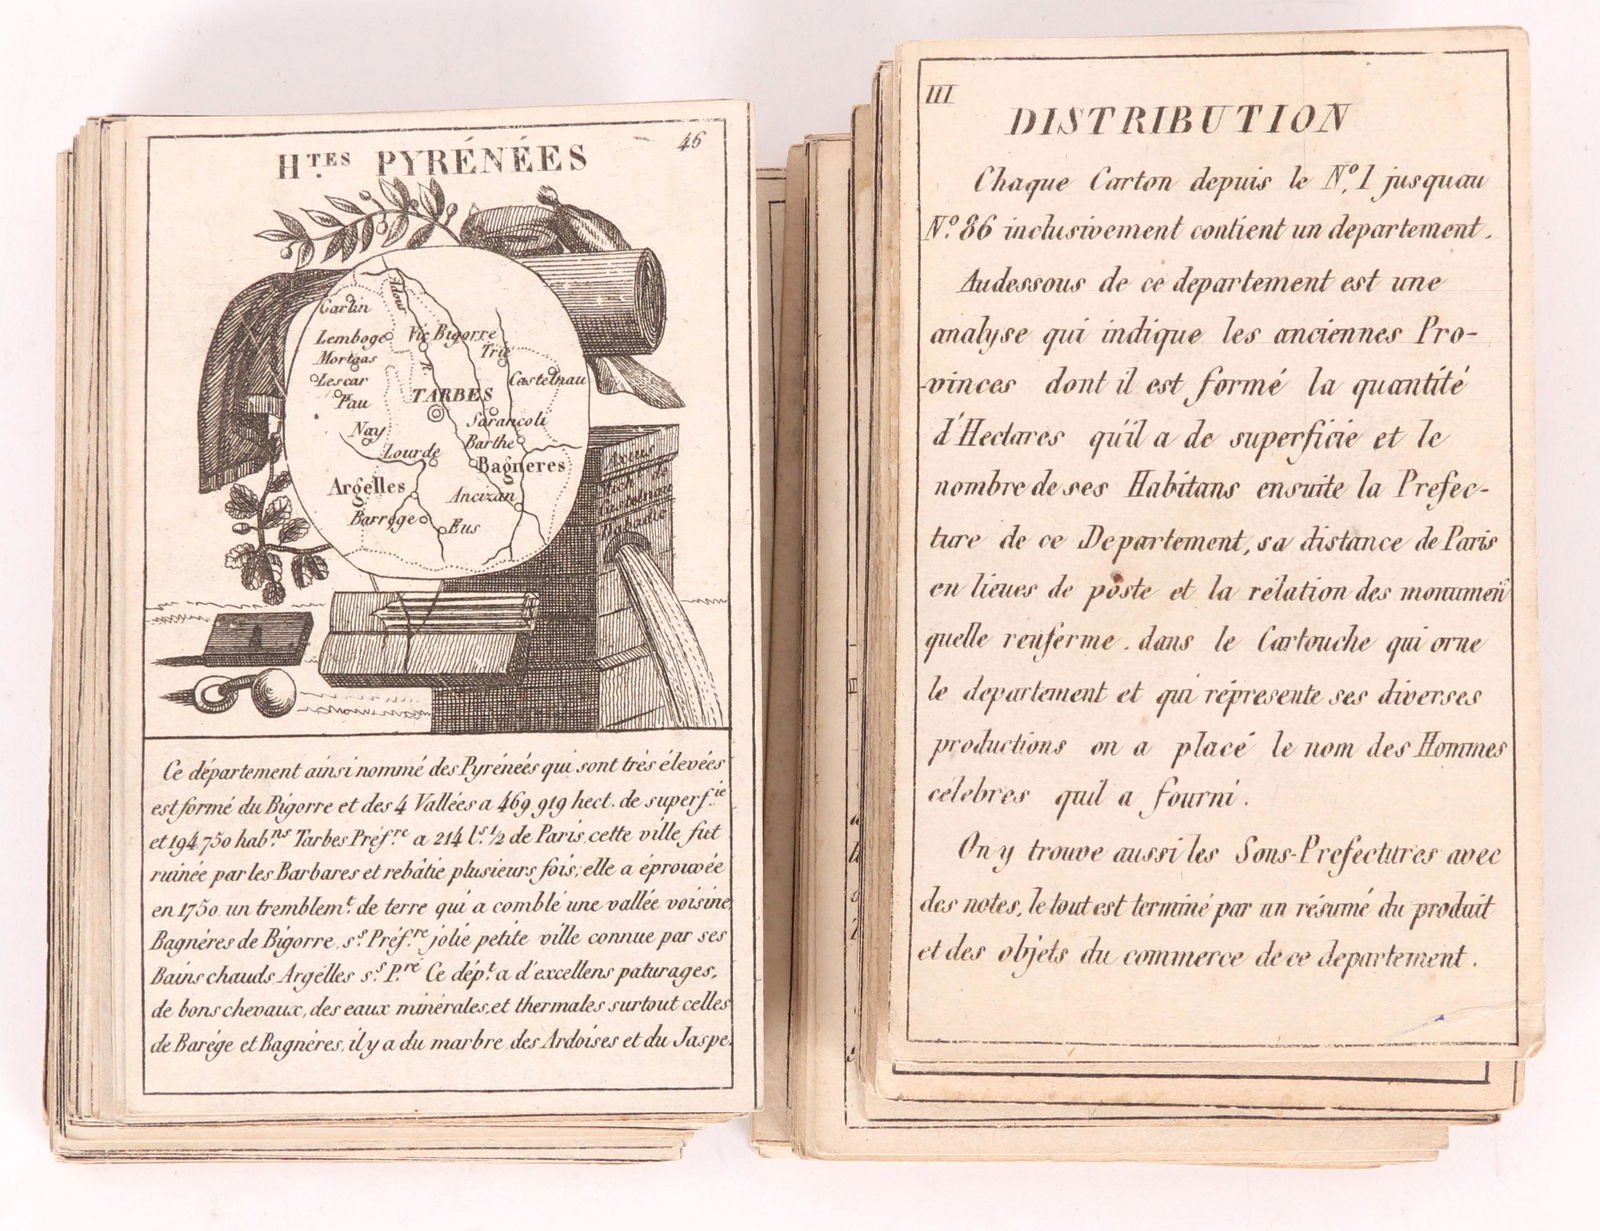 46
H.TES PYRÉNÉES
Adour
Garlin
Lembege
Vic Bigorre
Morlaas
Trie
Lescar
R.
Castelnau
Pau
TARBES
Sarancoli
Nay
Barthe
Lourde
Bagneres
Argelles
Ancizan
Barrege
Eus
Castelnau
Dabadie
Ce département ainsi nommé des Pyréneés qui sont très élevées
est formé du Bigorre et des 4 Vallées a 469,919 hect. de superf.ie
et 194,750 hab.ns Tarbes Préf.re a 214 l.s 1/2 de Paris, cette ville fut
ruinée par les Barbares et rebâtie plusieurs fois; elle a éprouvée
en 1750 un tremblem.t de terre qui a comblé une vallée voisine
Bagnéres de Bigorre, s.s Préf.re jolie petite ville connue par ses
Bains chauds Argélles s.s P.re Ce dép.t a d'excellens paturages,
de bons chevaux, des eaux minérales, et thermales surtout celles
de Barége et Bagnères, il y a du marbre des Ardoises et du Jaspe.
III
DISTRIBUTION
Chaque Carton depuis le N.o 1 jusquau
N.o 86 inclusivement contient un departement.
Audessous de ce departement est une
analyse qui indique les anciennes Pro-
vinces dont il est formé la quantité
d'Hectares qu'il a de superficie et le
nombre de ses Habitans ensuite la Prefec-
ture de ce Departement, sa distance de Paris
en lieues de poste et la rélation des monumen
quelle renferme. dans le Cartouche qui orne
le departement et qui répresente ses diverses
productions on a placé le nom des Hommes
célebres quil a fourni.
On y trouve aussi les Sous-Prefectures avec
des notes, le tout est terminé par un résumé du produit
et des objets du commerce de ce departement.